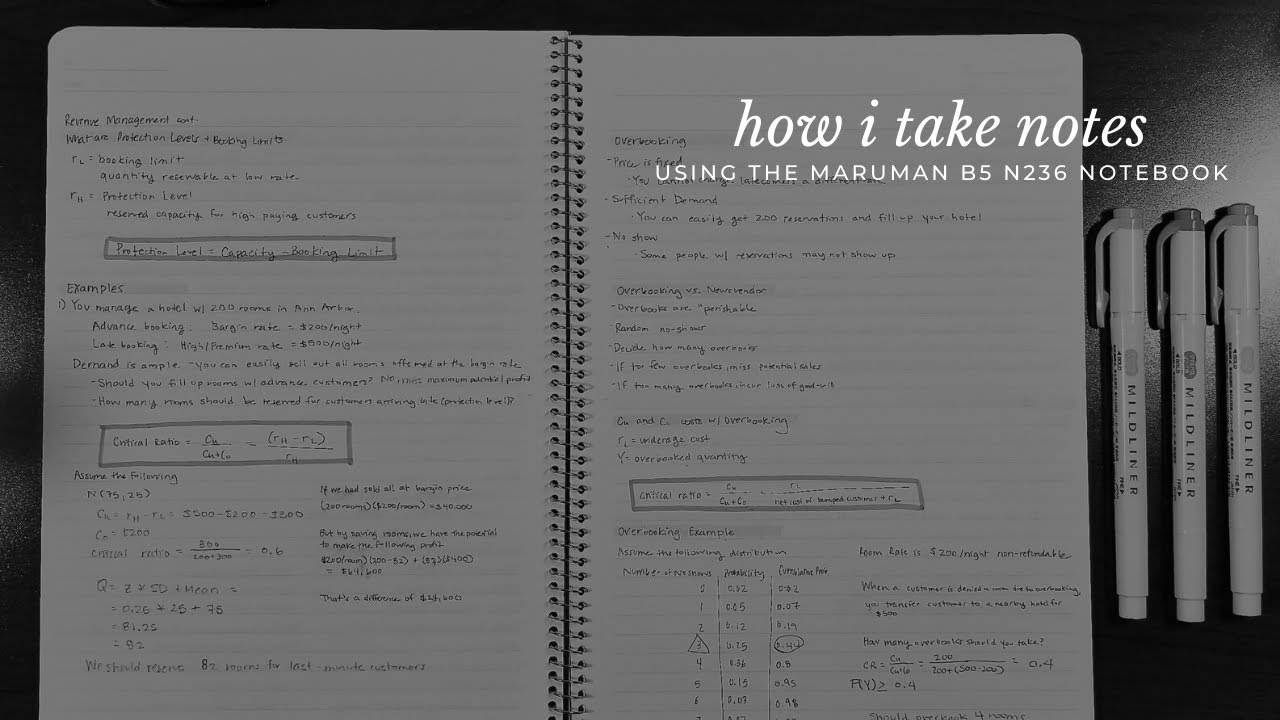 how i take notes
USING THE MARUMAN B5 N236 NOTEBOOK
Revenue Management cont.
What are Protection Levels + Booking Limits
rL = booking limit
quantity reservable at low rate
rH = Protection Level
reserved capacity for high paying customers
Protection Level = Capacity - Booking Limit
Examples
1) You manage a hotel w/ 200 rooms in Ann Arbor.
Advance booking: Bargin rate = $200/night
Late booking: High/Premium rate = $500/night
Demand is ample - you can easily sell out all rooms offered at the bargin rate
- Should you fill up rooms w/ advance customers? NO, miss maximum potential profit
- How many rooms should be reserved for customers arriving late (protection level)?
Critical Ratio = Cu / Cu+Co = (rH - rL) / rH
Assume the following
N(75, 25)
Cu = rH - rL = $500 - $200 = $300
Co = $200
critical ratio = 300 / 200+300 = 0.6
Q = Z * SD + Mean =
= 0.25 * 25 + 75
= 81.25
= 82
We should reserve 82 rooms for last-minute customers
If we had sold all at bargin price
(200 rooms)($200/room) = $40,000
But by saving rooms, we have the potential
to make the following profit
$200/room (200-82) + (82)($400)
= $64,600
That's a difference of $24,600
Overbooking
- Price is fixed
· You cannot charge latecomers a different rate
- Sufficient Demand
· You can easily get 200 reservations and fill up your hotel
- No show
· Some people w/ reservations may not show up
Overbooking vs. Newsvendor
- Overbooks are "perishable
- Random no-shows
- Decide how many overbooks
- If too few overbooks, miss potential sales
- If too many overbooks, incur loss of good-will
Cu and Co costs w/ Overbooking
rL = underage cost
Y = overbooked quantity
critical ratio = Cu / Cu+Co = rL / net cost of bumped customer + rL
Overbooking Example
Assume the following distribution
Number of No shows Probability Cumulative Prob
0 0.02 0.02
1 0.05 0.07
2 0.12 0.19
3 0.25 0.44
4 0.36 0.8
5 0.15 0.95
6 0.03 0.98
7 0.02
Room Rate is $200/night non-refundable
When a customer is denied a room due to overbooking,
you transfer customer to a nearby hotel for
$500
How many overbooks should you take?
CR = Cu / Cu+Co = 200 / 200+(500-200) = 0.4
F(Y) ≥ 0.4
Should overbook 4 rooms
MILDLINER
MILDLINER
MILDLINER